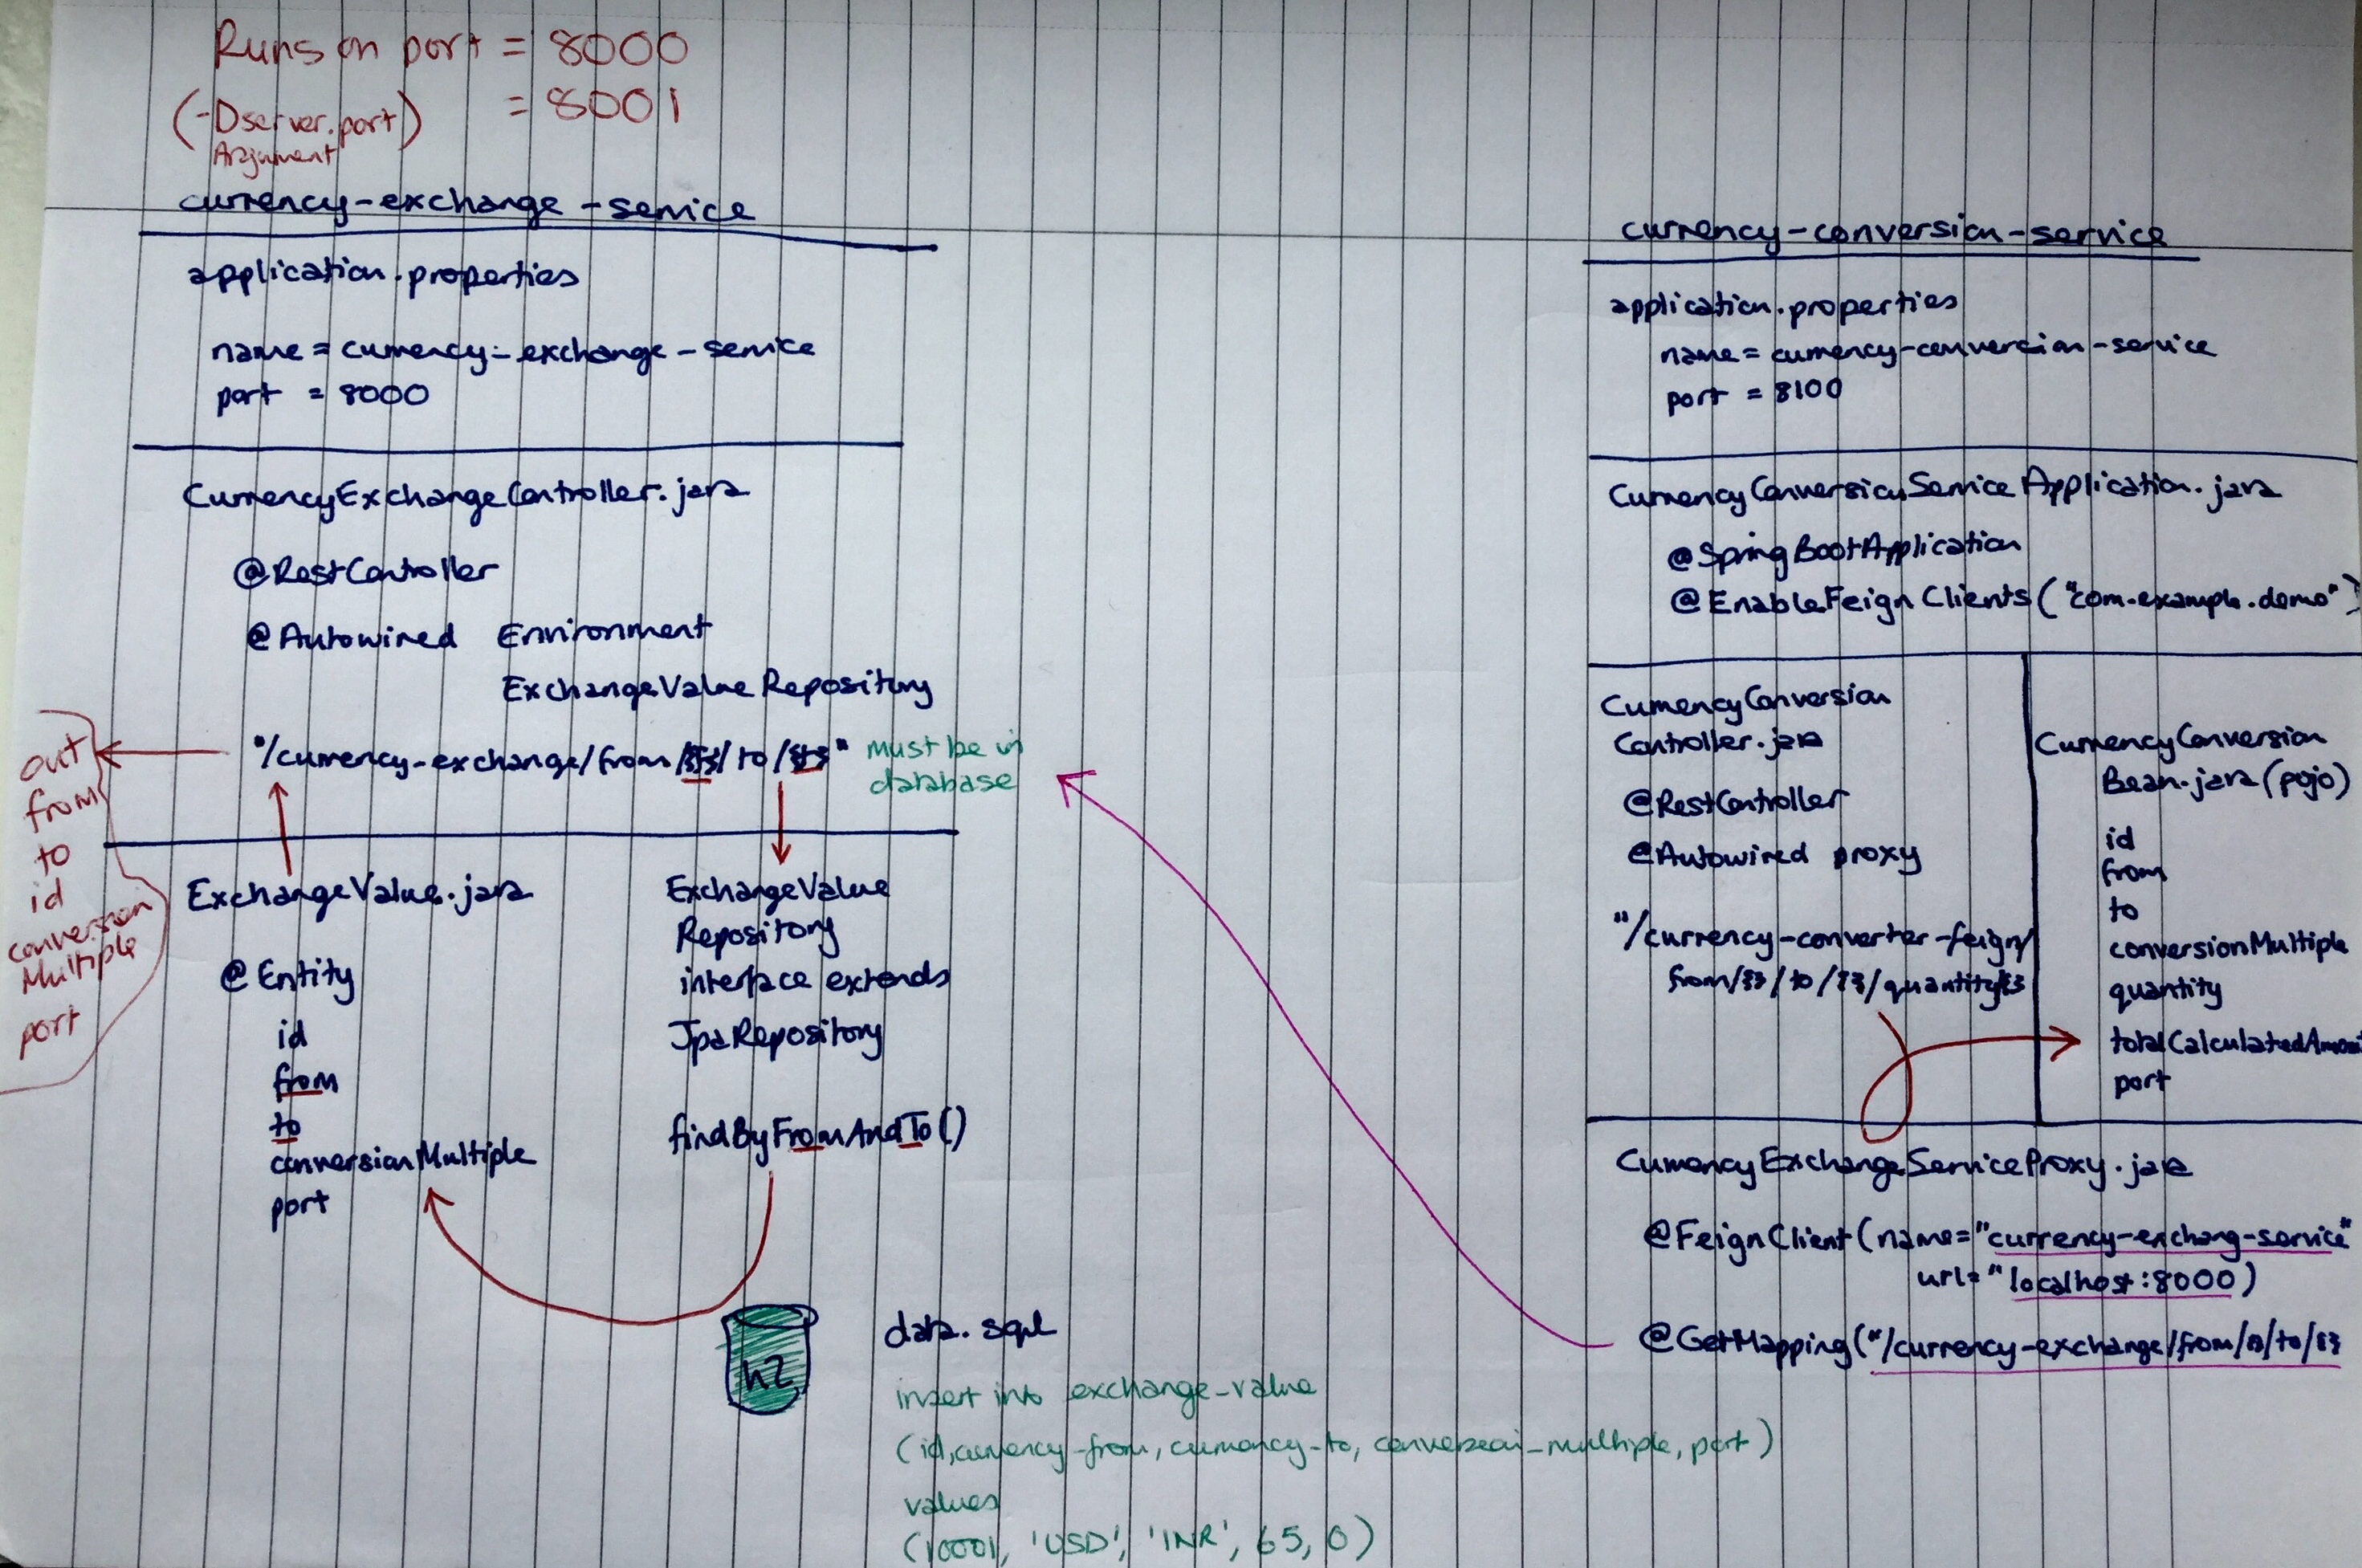 Runs on port = 8000
(-Dserver.port) = 8001
Argument
currency-exchange-service
application.properties
name = currency-exchange-service
port = 8000
CurrencyExchangeController.java
@RestController
@Autowired Environment
ExchangeValueRepository
"/currency-exchange/from/{f}/to/{t}"
must be in
database
out
from
to
id
conversion
Multiple
port
ExchangeValue.java
@Entity
id
from
to
conversionMultiple
port
ExchangeValue
Repository
interface extends
JpaRepository
findByFromAndTo()
h2
data.sql
insert into exchange_value
(id,currency-from, currency-to, conversion_multiple, port)
values
(10001, 'USD', 'INR', 65, 0)
currency-conversion-service
application.properties
name = currency-conversion-service
port = 8100
CurrencyConversionServiceApplication.java
@SpringBootApplication
@EnableFeignClients("com.example.demo")
CurrencyConversion
Controller.java
@RestController
@Autowired proxy
"/currency-converter-feign/
from/{}/to/{}/quantity/{}
CurrencyConversion
Bean.java (pojo)
id
from
to
conversionMultiple
quantity
totalCalculatedAmount
port
CurrencyExchangeServiceProxy.java
@FeignClient(name="currency-exchang-service"
url="localhost:8000)
@GetMapping("/currency-exchange/from/{}/to/{}